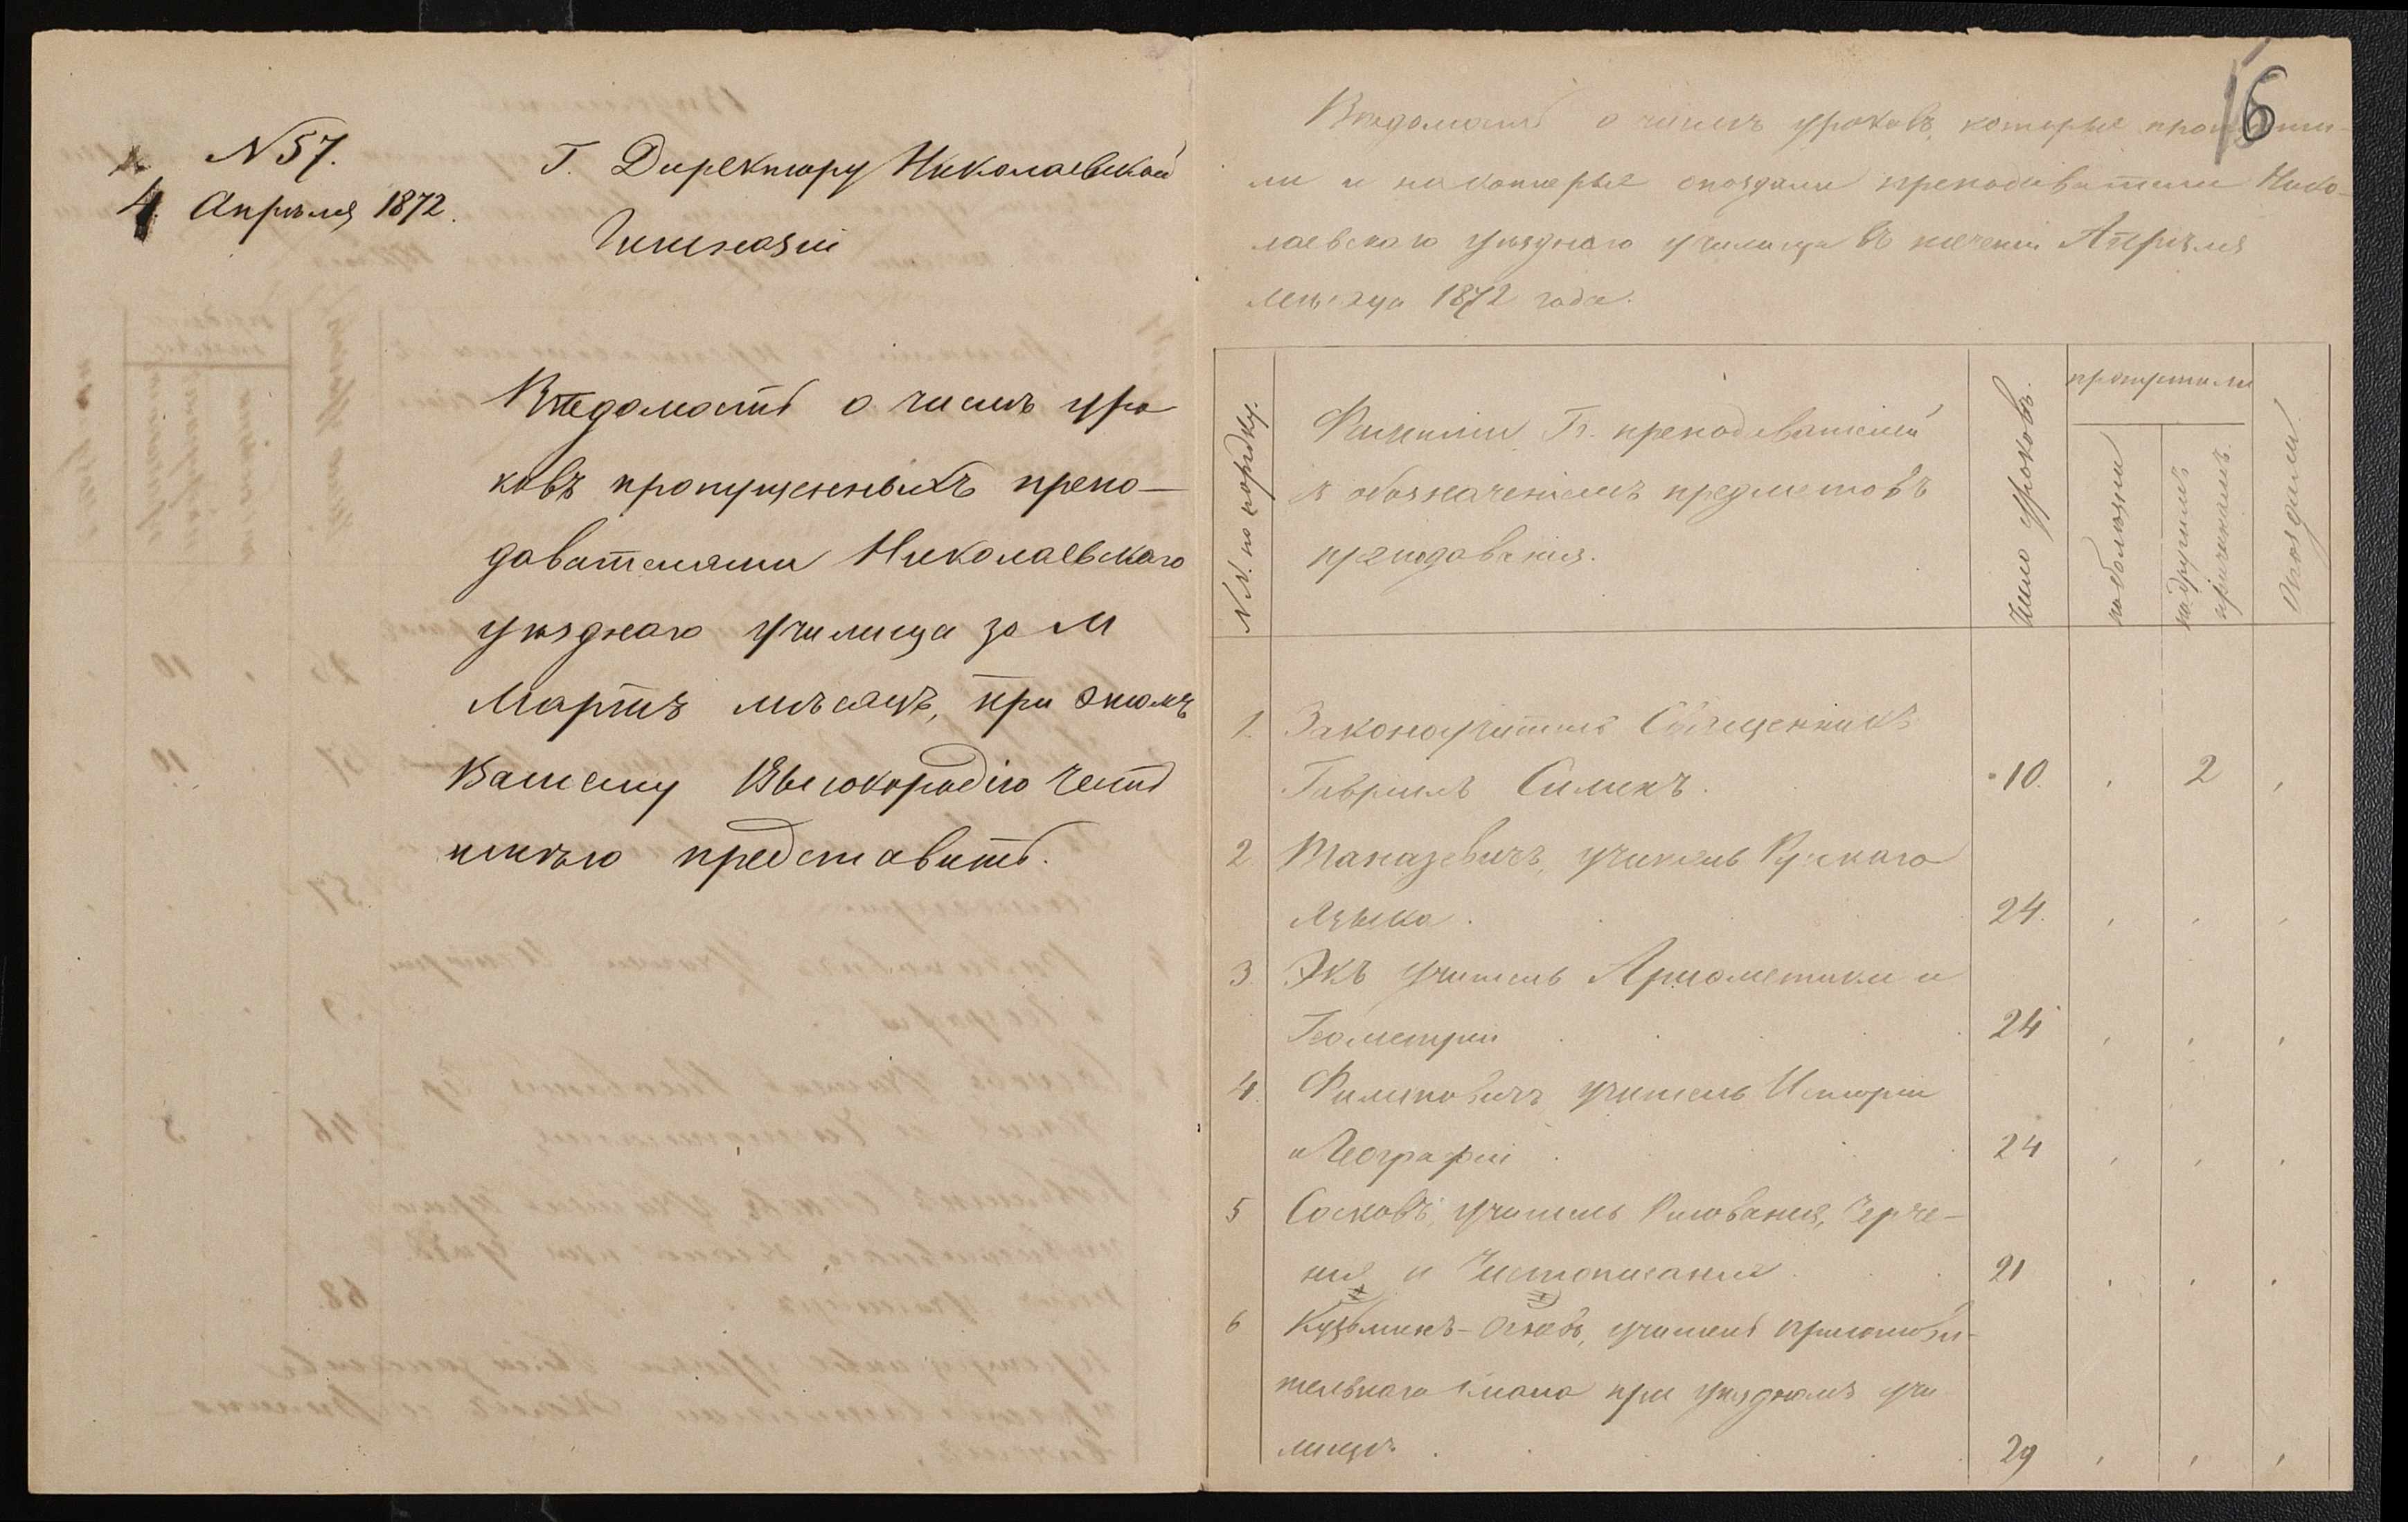 N 57.
4 Апрѣля 1872.
Г. Директору Николаевской
Гимназіи
Вѣдомость о числѣ уро
ковъ пропущенныхъ препо–
давателями Николаевскаго
уѣзднаго училища за М
Мартъ мѣсяцъ, при этомъ
Вашему Высокородію честь
имѣю представить.
16
Вѣдомость о числѣ уроковъ, которые пропусти-
ли и на которые опоздали преподаватели Нико-
лаевскаго уѣзднаго училища въ теченіи Апрѣля
мѣсяца 1872 года.
N.N. по порядку.
Фамиліи Гг. преподавателей
съ обозначеніемъ предметовъ
преподаванія.
Число уроковъ.
пропустили
по болѣзни
по другимъ
причинамъ.
Опоздали
1 Законоучитель Священникъ
Гавріилъ Силинъ. 10. 2
2 учитель Рускаго
языка. 24.
3. Экъ учитель Ариѳметики и
Геометріи 24
4. Филиповичъ учитель Исторіи
и Географіи 24
5 Сосковъ, учитель Рисованія, Черче–
нія и Чистописанія 21
6 Кузьминъ- учитель приготови-
тельнаго класа при уѣздномъ учи
лищѣ. 29